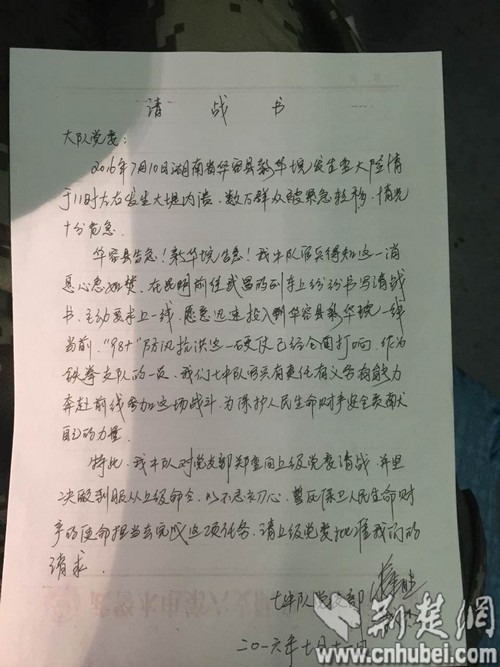 请战书
大队党委：
2016年7月10日湖南省华容县新华垸发生重大险情
于11时左右发生大堤内溃，数万群众被紧急转移，情况
十分危急。
华容县告急！新华垸告急！我中队官兵得知这一消
息心急如焚，在昆明前往武昌的列车上纷纷书写请战
书，主动要求上一线，愿意迅速投入到华容县新华垸一线
当前，“98+”防汛抗洪这一硬仗已经全面打响，作为
铁拳支队的一员，我们七中队官兵有责任有义务有能力
奔赴前线参加这场战斗，为保护人民生命财产安全贡献
自己的力量。
特此，我中队党支部郑重向上级党委请战，并坚
决做到服从上级命令，以不忘初心，誓死保卫人民生命财
产的使命担当去完成这项任务，请上级党委批准我们的
请求。
七中队党支部
二〇一六年七月十
荆楚网
www.cnhubei.com